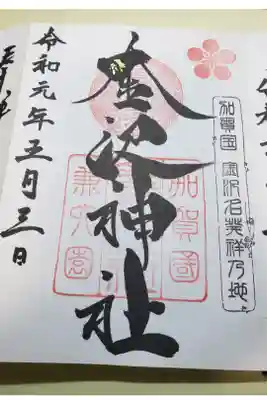 加賀国 金沢名発祥乃地
金沢神社
加賀國
兼六園
令和元年五月三日